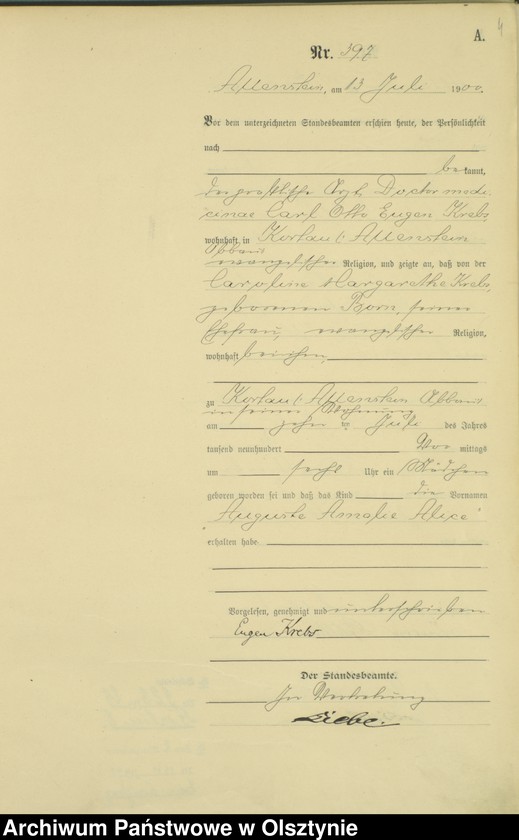 A.
4
Nr. 397
Allenstein, am 13 Juli 1900.
Vor dem unterzeichneten Standesbeamten erschien heute, der Persönlichkeit
nach
bekannt,
der praktische Arzt Doctor medi
cinae Carl Otto Eugen Krebs
wohnhaft in Kortau b. Allenstein
Abbau
evangelischer Religion, und zeigte an, daß von der
Caroline Margarethe Krebs,
geborenen Born, seiner
Ehefrau, evangelischer Religion,
wohnhaft bei ihm,
zu Kortau b. Allenstein Abbau
in seiner Wohnung
am zehn ten Juli des Jahres
tausend neunhundert Vor mittags
um sechs Uhr ein Mädchen
geboren worden sei und daß das Kind die Vornamen
Auguste Amalie Alice
erhalten habe.
Vorgelesen, genehmigt und unterschrieben
Eugen Krebs
Der Standesbeamte.
In Vertretung
Liebe.
Archiwum Państwowe w Olsztynie